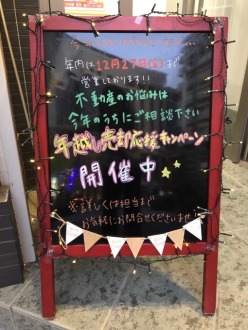 年内は12月27日(金)まで
営業しております!!
不動産のお悩みは
今年のうちにご相談下さい
年越し売却応援キャンペーン
開催中
※詳しくは担当まで
お気軽にお問合せくださいませ!